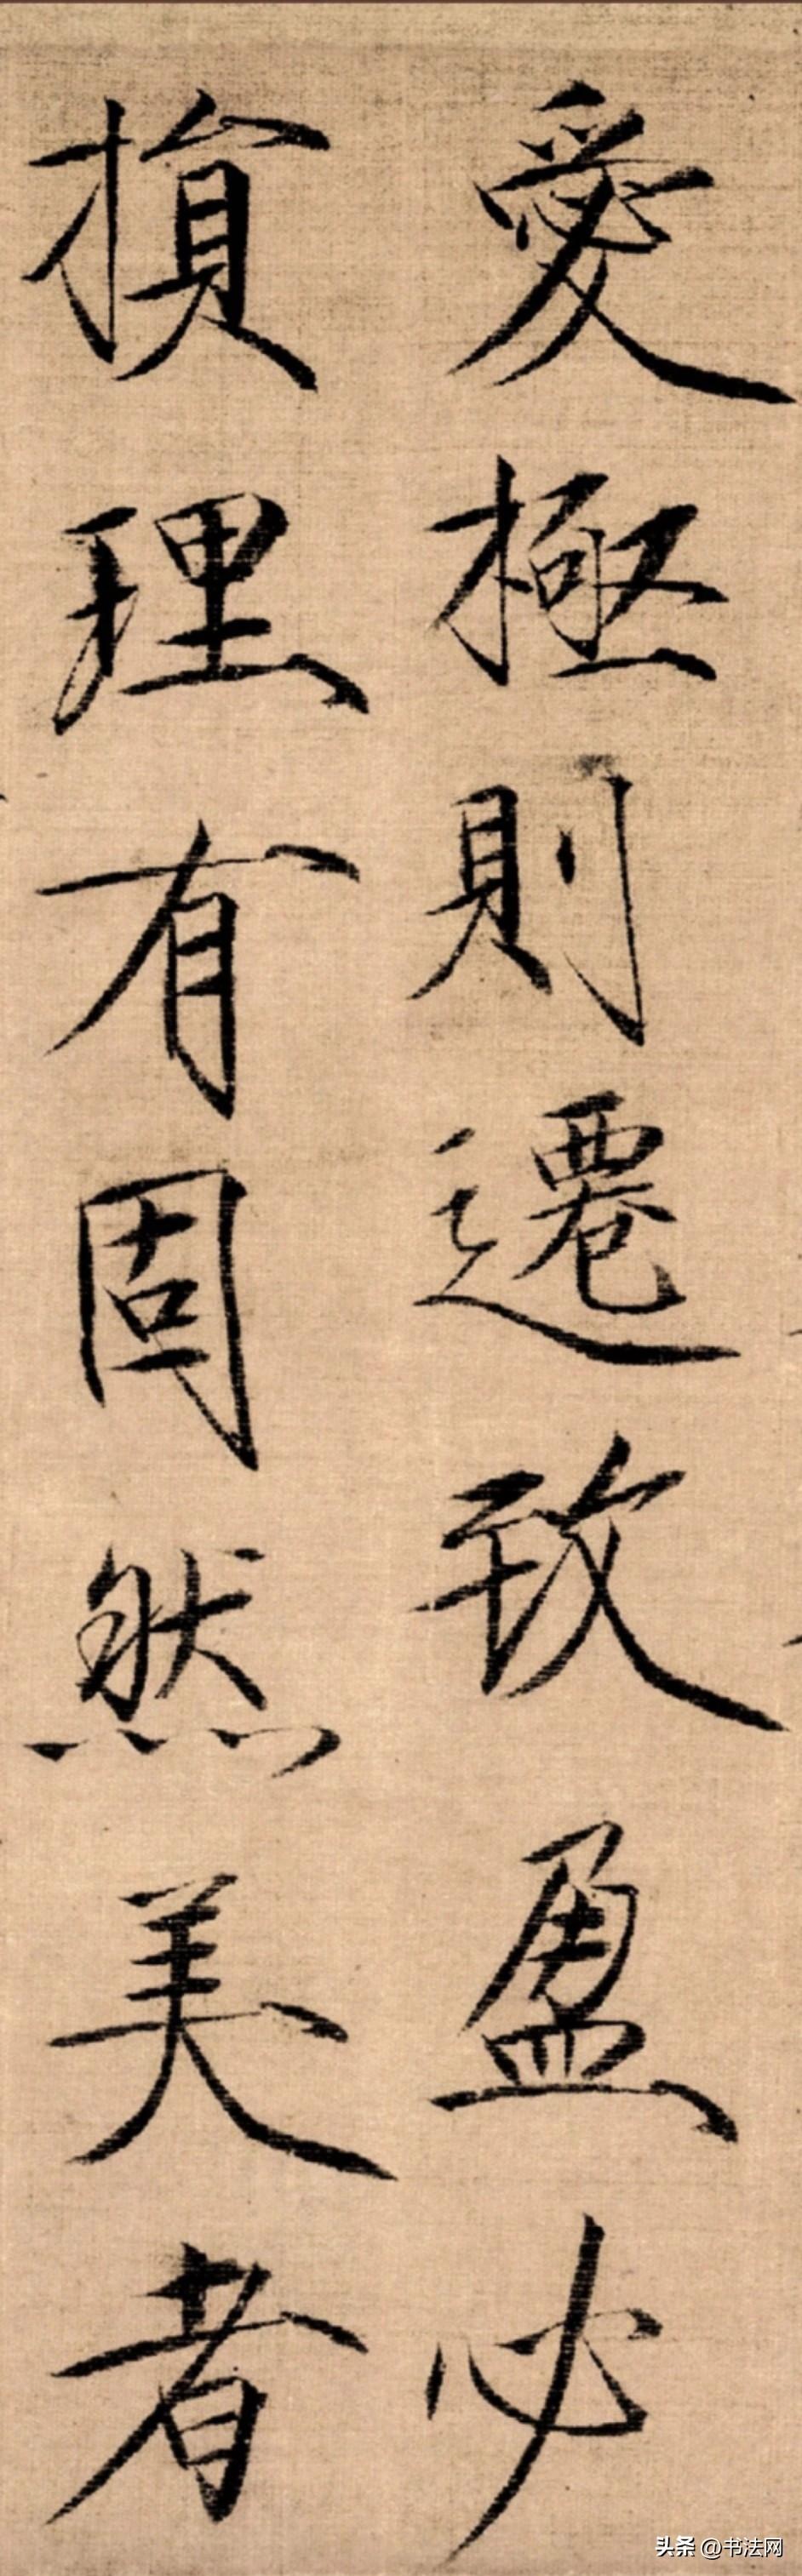 愛極則遷致盈必
損理有固然美者
头条 @书法网